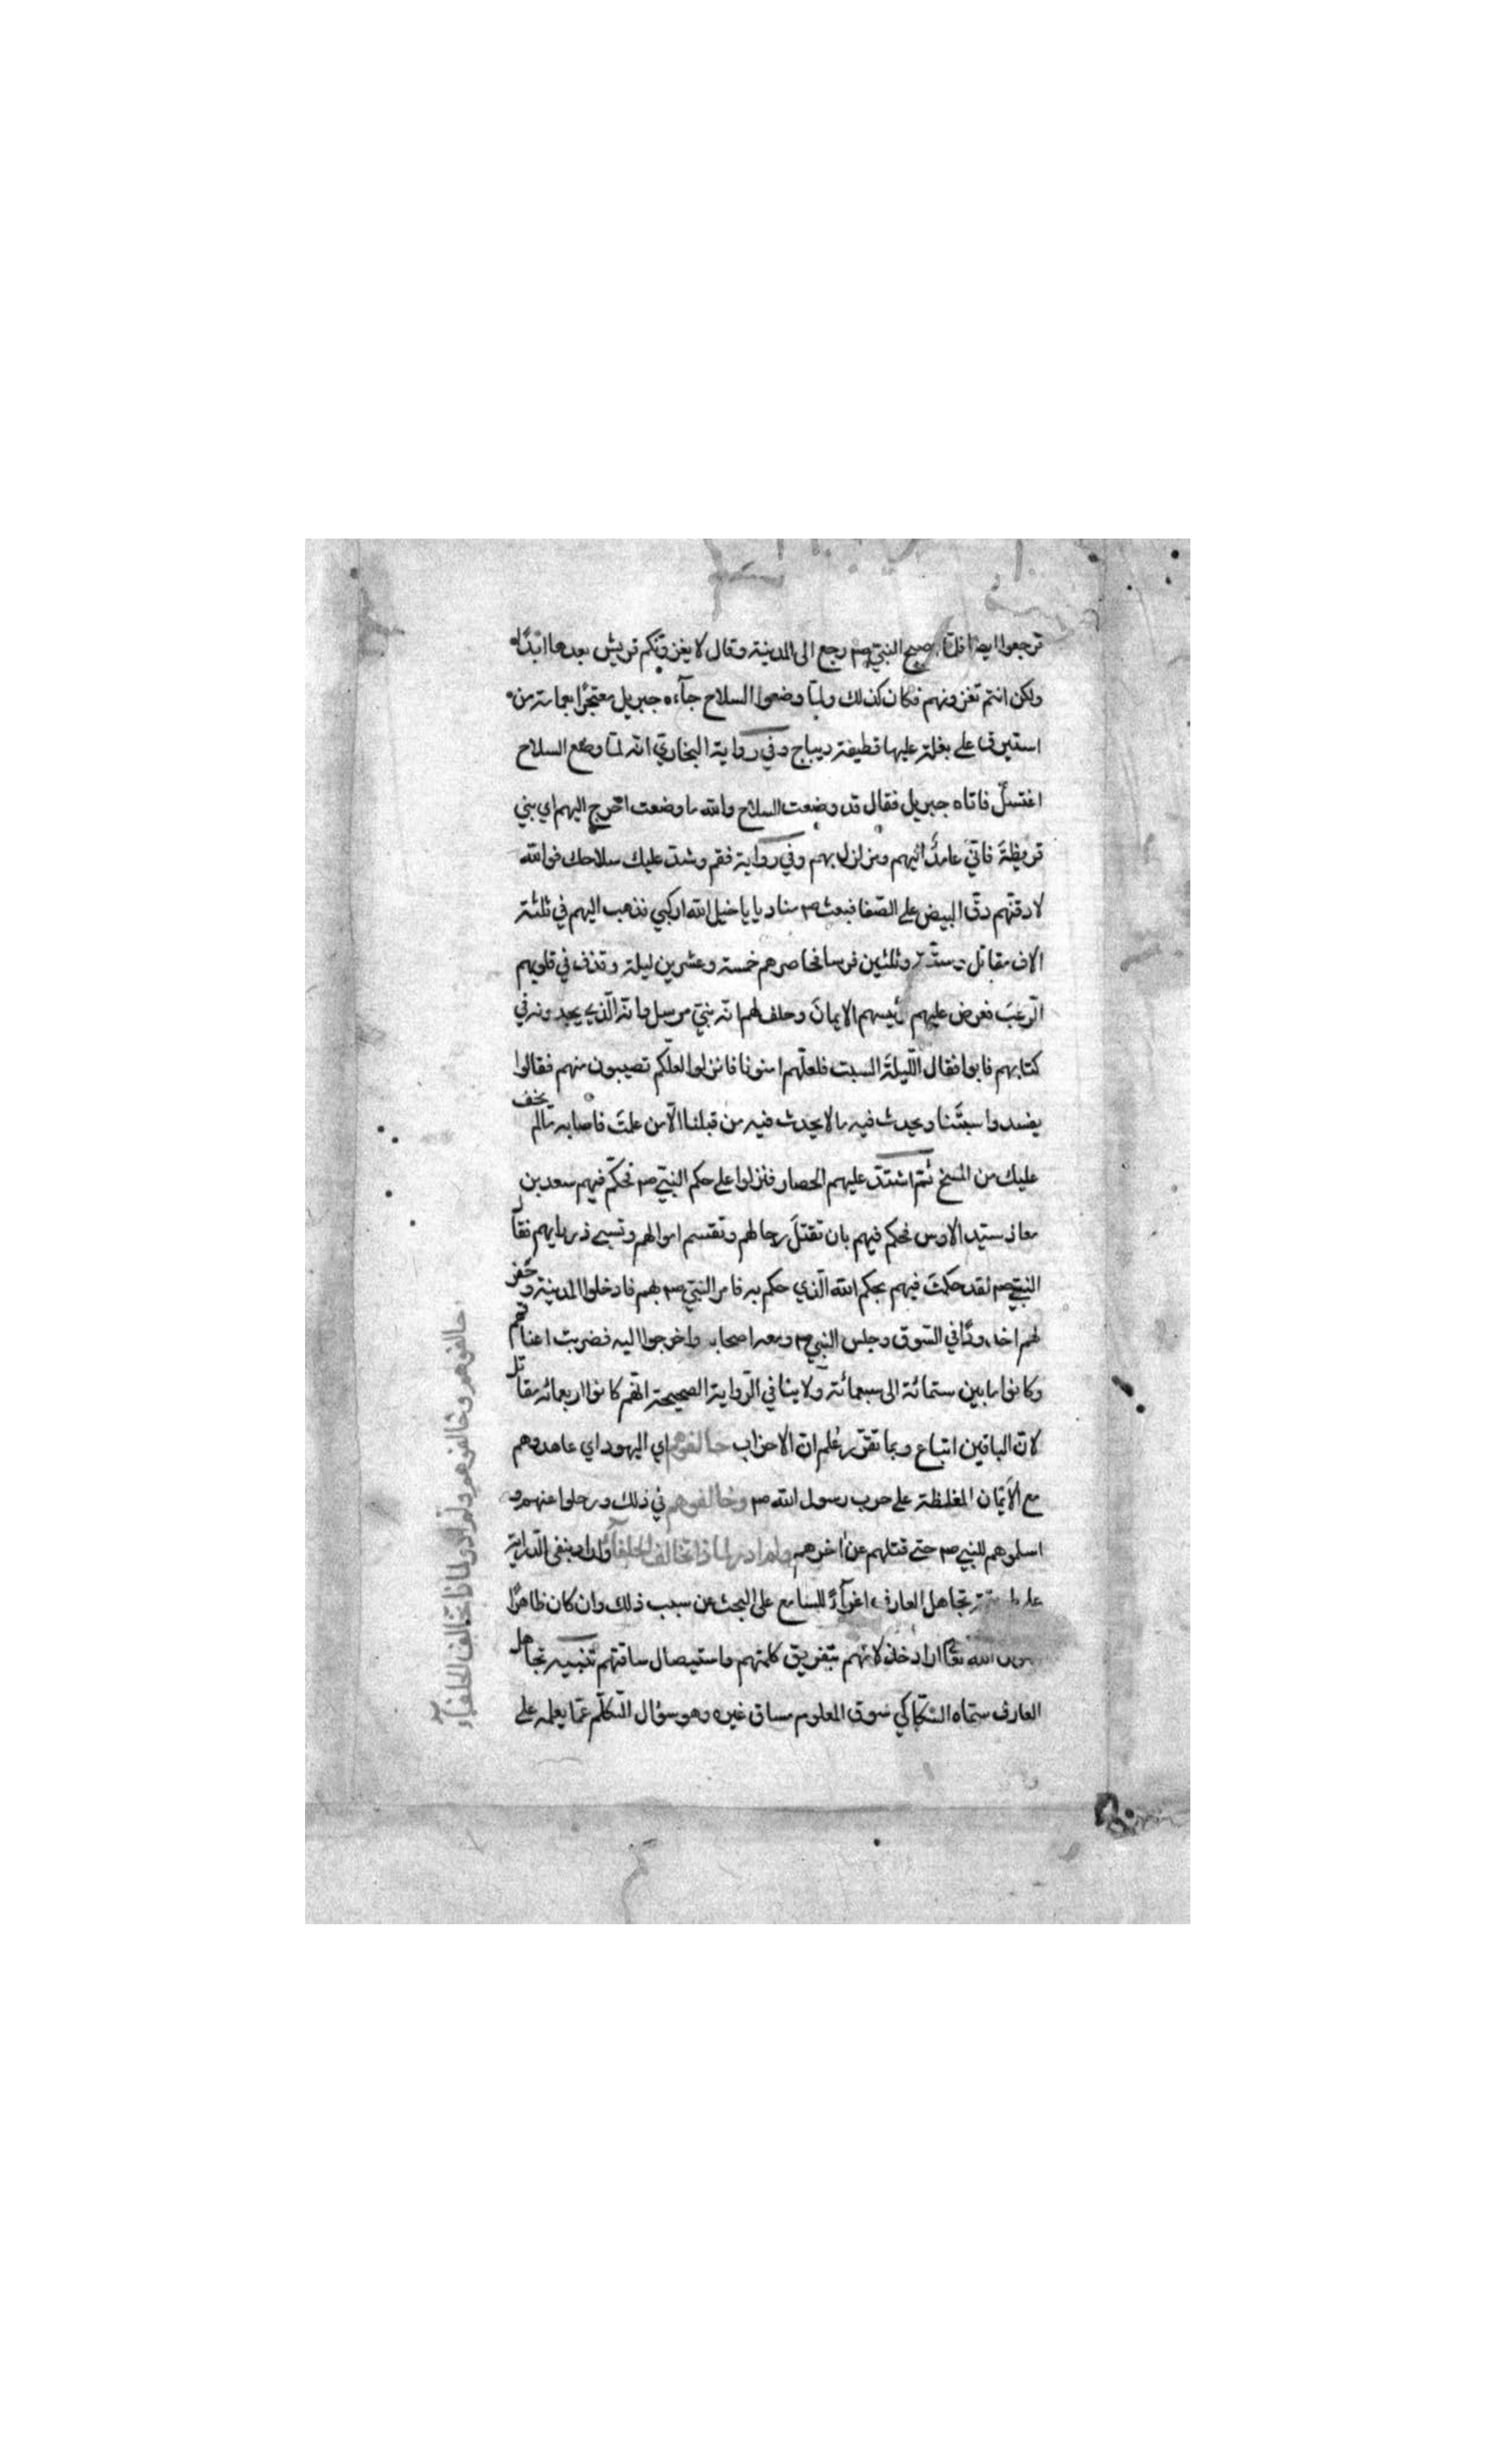 ترجعوا ايضا فلما اصبح النبي صم رجع الى المدينة وقال لا يغزونكم قريش بعدها ابدًا
ولكن انتم تغزونهم فكان كذلك ولما وضعوا السلاح جآءه جبريل معتجرًا بعمامة من
استبرق على بغلة عليها قطيفة ديباج وفي رواية البخاري انه لما وضع السلاح
اغتسل فاتاه جبريل فقال قد وضعت السلاح والله ما وضعت اخرج اليهم اي بني
قريظة فاني عامد اليهم ومزلزل بهم وفي رواية فقم وشد عليك سلاحك فوالله
لادقنهم دق البيض على الصفا فبعث صم مناديا يا خيل الله اركبي فذهب اليهم في ثلثة
الاف مقاتل وستة وثلثين فرسا فحاصرهم خمسة وعشرين ليلة وقذف في قلوبهم
الرعب فعرض عليهم رئيسهم الايمان وحلف لهم انه نبي مرسل وانه الذي يجدونه في
كتابهم فابوا فقال الليلة السبت فلعلهم امنونا فانزلوا لعلكم تصيبون منهم فقالوا
يفسدوا سبتنا ويحدث فيه ما لا يحدث فيه من قبلنا الا من علمت فاصابه ما لم يخف
عليك من المسخ ثم اشتد عليهم الحصار فنزلوا على حكم النبي صم فحكم فيهم سعد بن
معاذ سيد الاوس فحكم فيهم بان تقتل رجالهم وتقسم اموالهم وتسبى ذراريهم فقال
النبي صم لقد حكمت فيهم بحكم الله الذي حكم به فامر النبي صم بهم فادخلوا المدينة وحفر
لهم اخدودًا في السوق وجلس النبي صم ومعه اصحابه واخرجوا اليه فضربت اعناقهم
وكانوا ما بين ستمائة الى سبعمائة ولا ينافي الرواية الصحيحة انهم كانوا اربعمائة مقاتل
لان الباقين اتباع وبما تقرر علم ان الاحزاب حالفوهم اي اليهود اي عاهدوهم
مع الايمان المغلظة على حرب رسول الله صم وخالفوهم في ذلك ورحلوا عنهم و
اسلموهم للنبي صم حتى قتلهم عن اخرهم ولم ادر لماذا تخالف الحلفآء واراد بنفي الدراية
تجاهل العارف اغرآءً للسامع على البحث عن سبب ذلك وان كان ظاهرًا
الله تعا اراد خذلانهم بتفريق كلمتهم واستيصال ساقتهم تنبيه تجاهل
العارف سماه السكاكي سوق المعلوم مساق غيره وهو سؤال المتكلم عما يعلمه على
حالفوهم وخالفوهم ولم ادر لماذا تخالف الحلفآء